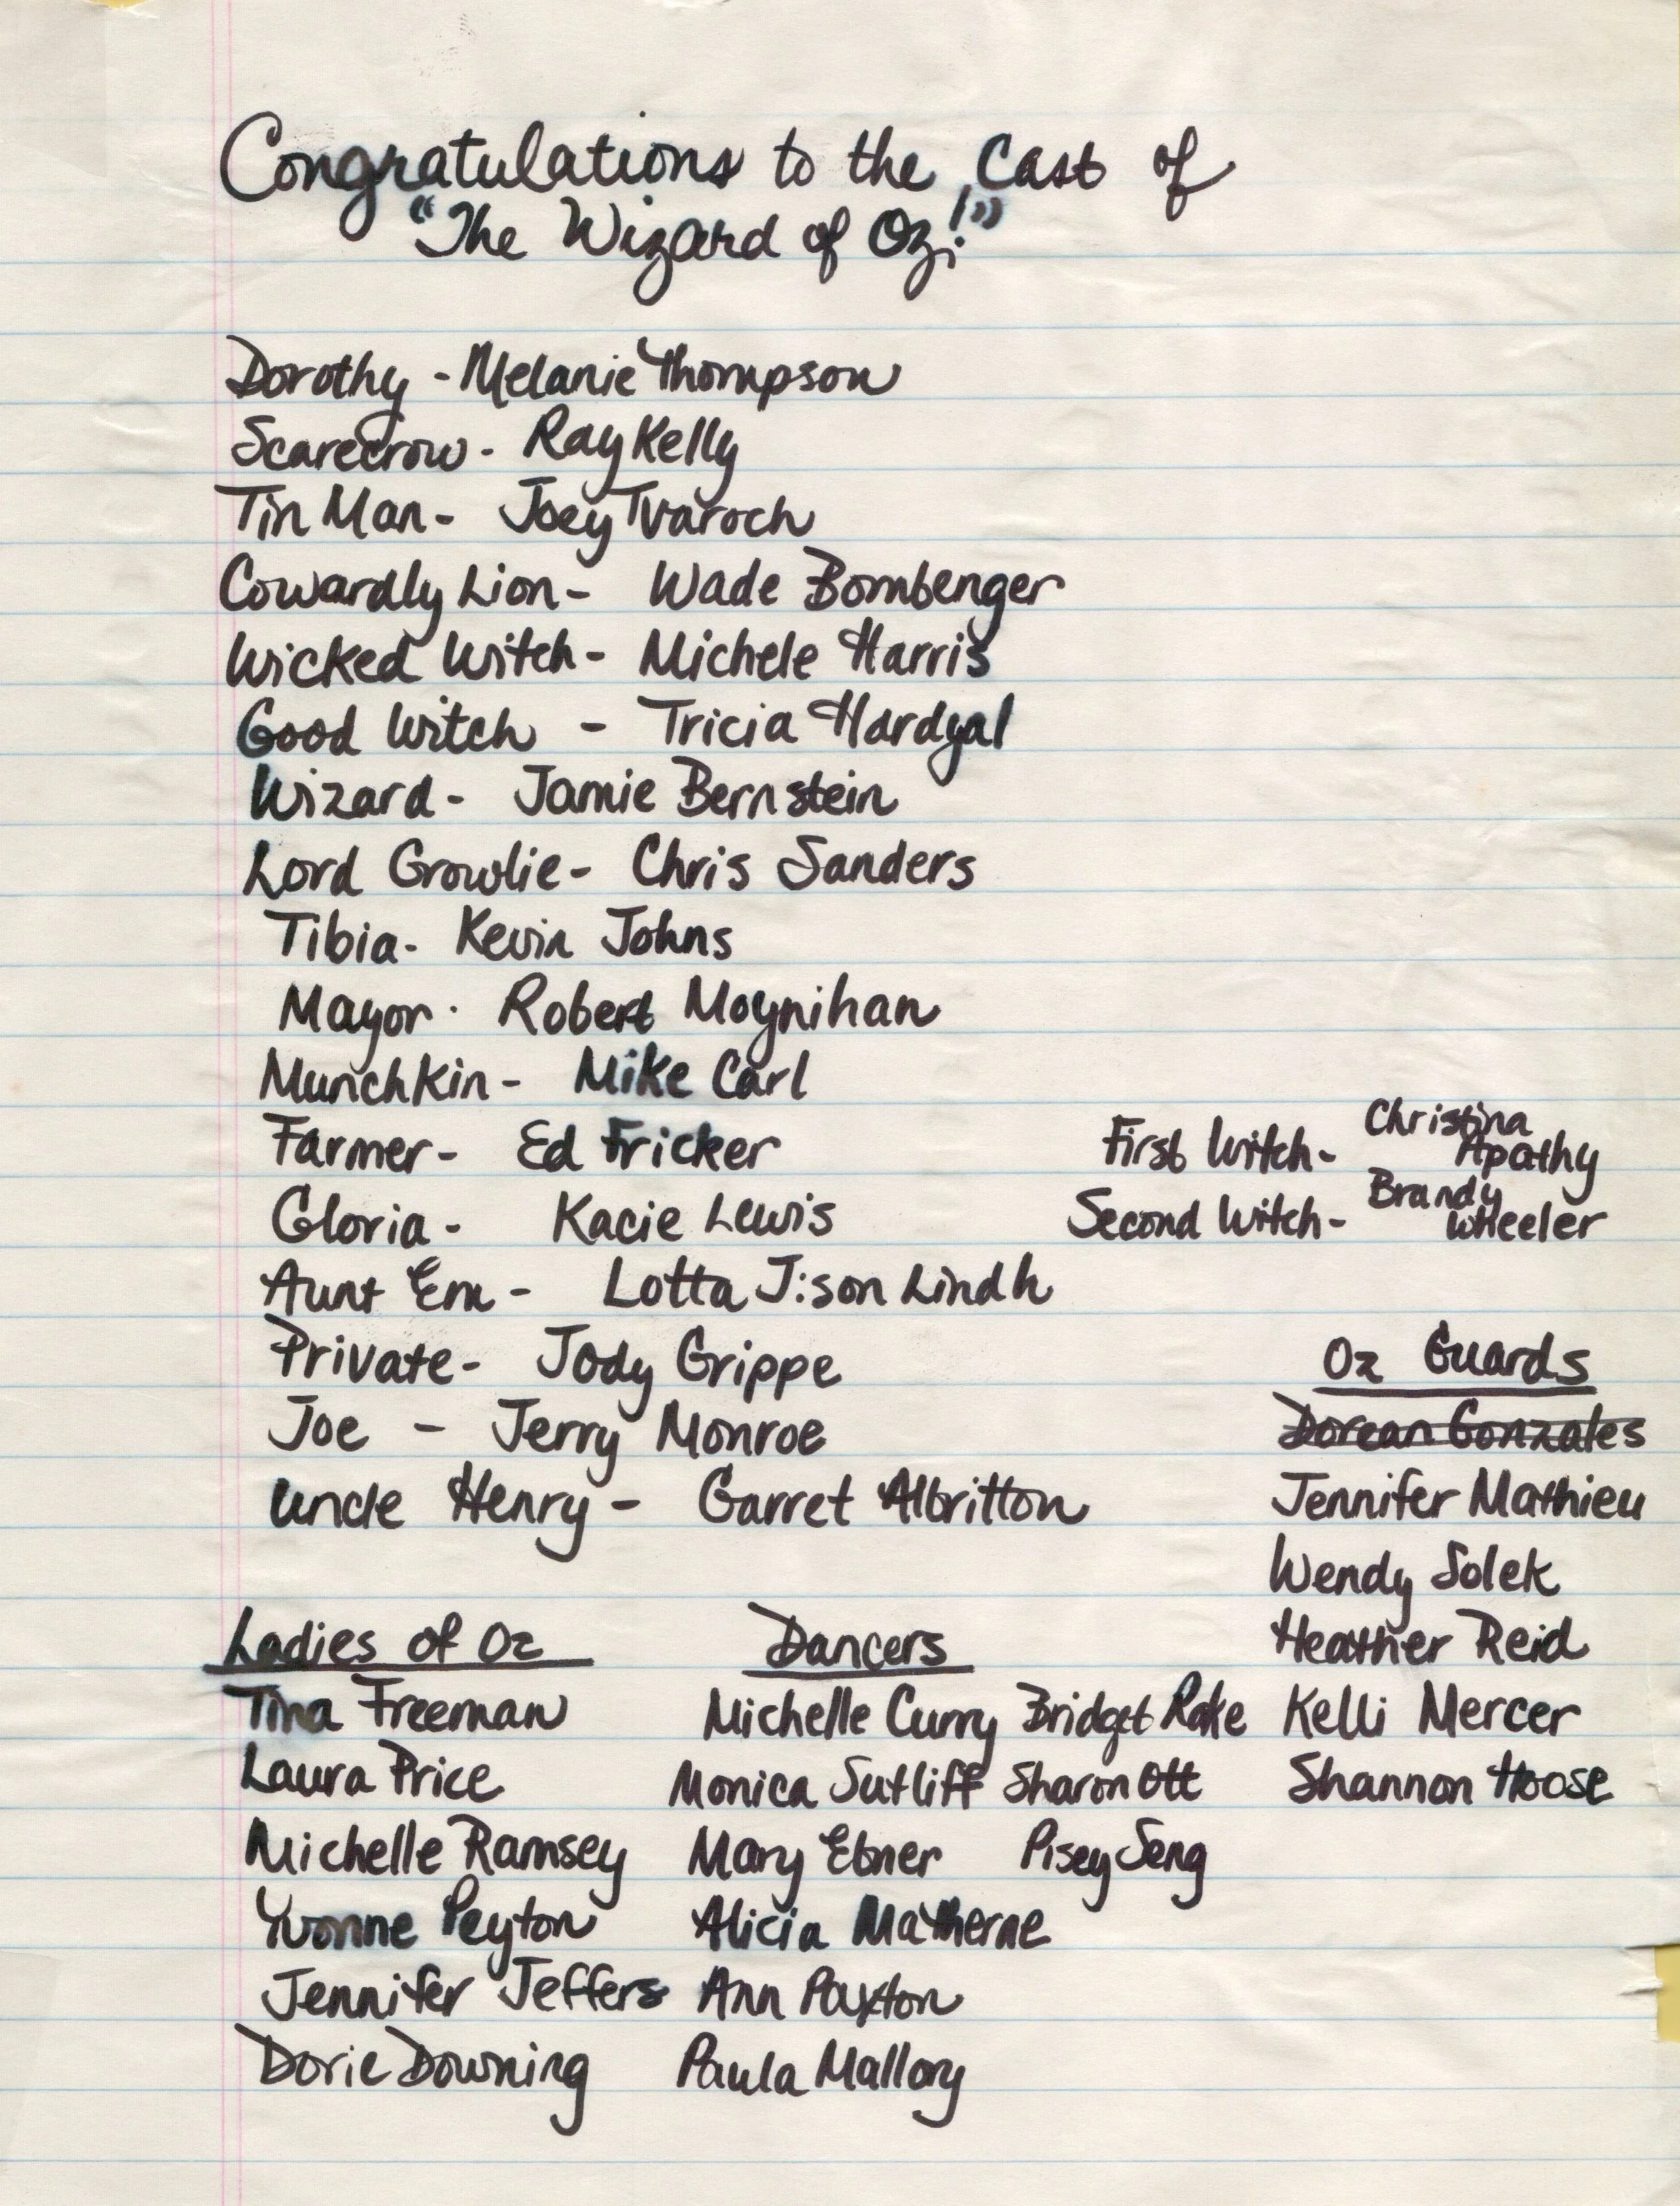 Congratulations to the Cast of
"The Wizard of Oz!"
Dorothy - Melanie Thompson
Scarecrow - Ray Kelly
Tin Man - Joey Tvaroch
Cowardly Lion - Wade Bombenger
Wicked Witch - Michele Harris
Good Witch - Tricia Hardgal
Wizard - Jamie Bernstein
Lord Growlie - Chris Sanders
Tibia - Kevin Johns
Mayor - Robert Moynihan
Munchkin - Mike Carl
Farmer - Ed Fricker
Gloria - Kacie Lewis
Aunt Em - Lotta J:son Lindh
Private - Jody Grippe
Joe - Jerry Monroe
Uncle Henry - Garret Albritton
First Witch - Christina Apathy
Second Witch - Brandy Wheeler
Oz Guards
Dorean Gonzales
Jennifer Mathieu
Wendy Solek
Heather Reid
Kelli Mercer
Shannon Hoose
Ladies of Oz
Tina Freeman
Laura Price
Michelle Ramsey
Yvonne Peyton
Jennifer Jeffers
Dorie Downing
Dancers
Michelle Curry Bridget Rake
Monica Sutliff Sharon Ott
Mary Ebner Pisey Seng
Alicia Matherne
Ann Paxton
Paula Mallory